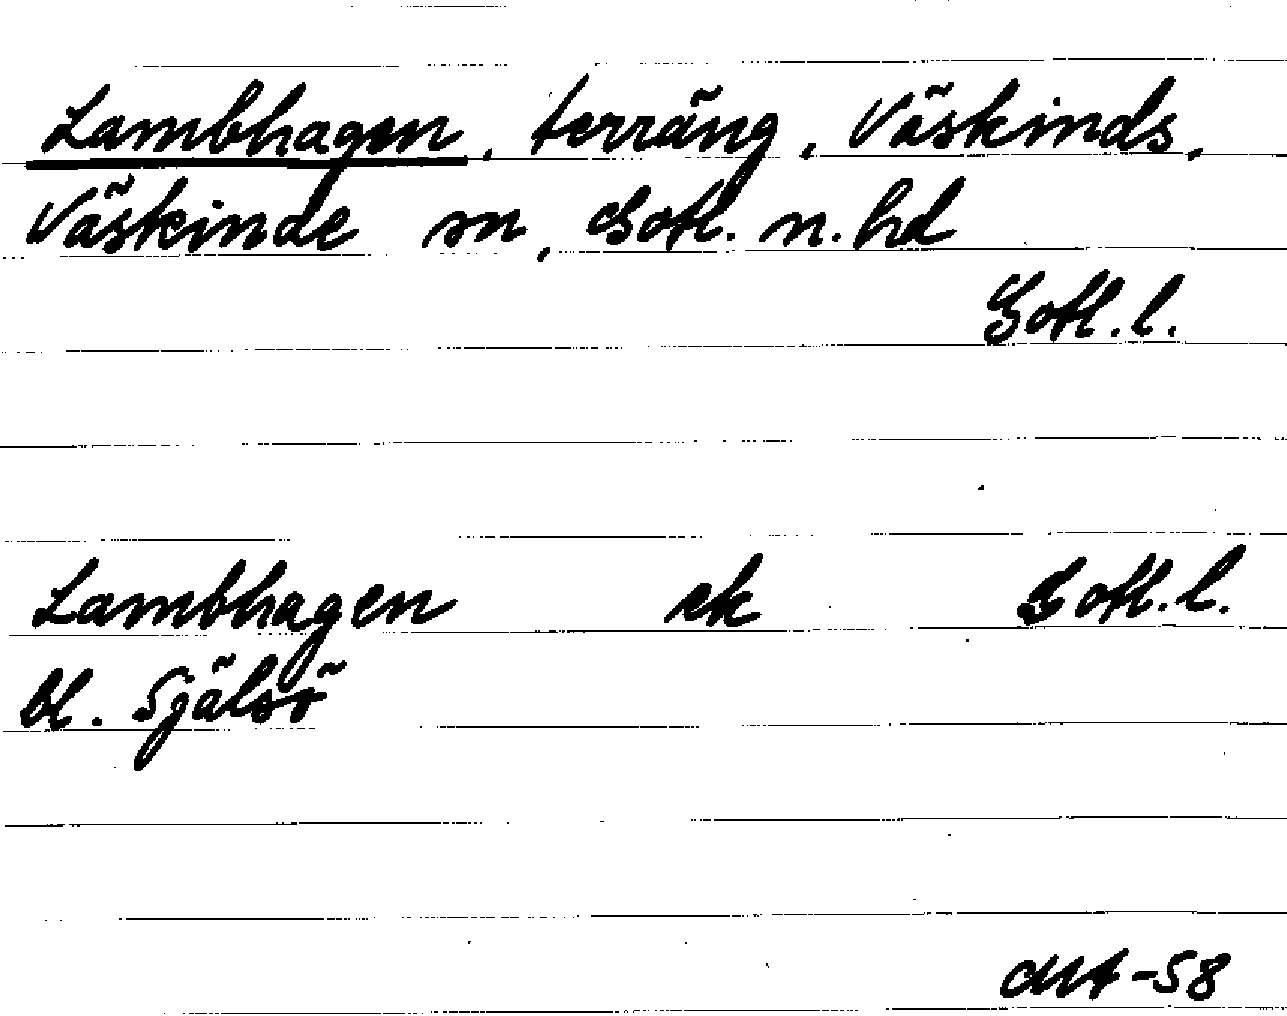 Lambhagen, terräng, Väskinds,
Väskinde sn, Gotl. n. hd
Gotl. l.
Lambhagen ek Gotl. l.
bl. Själsö
-58